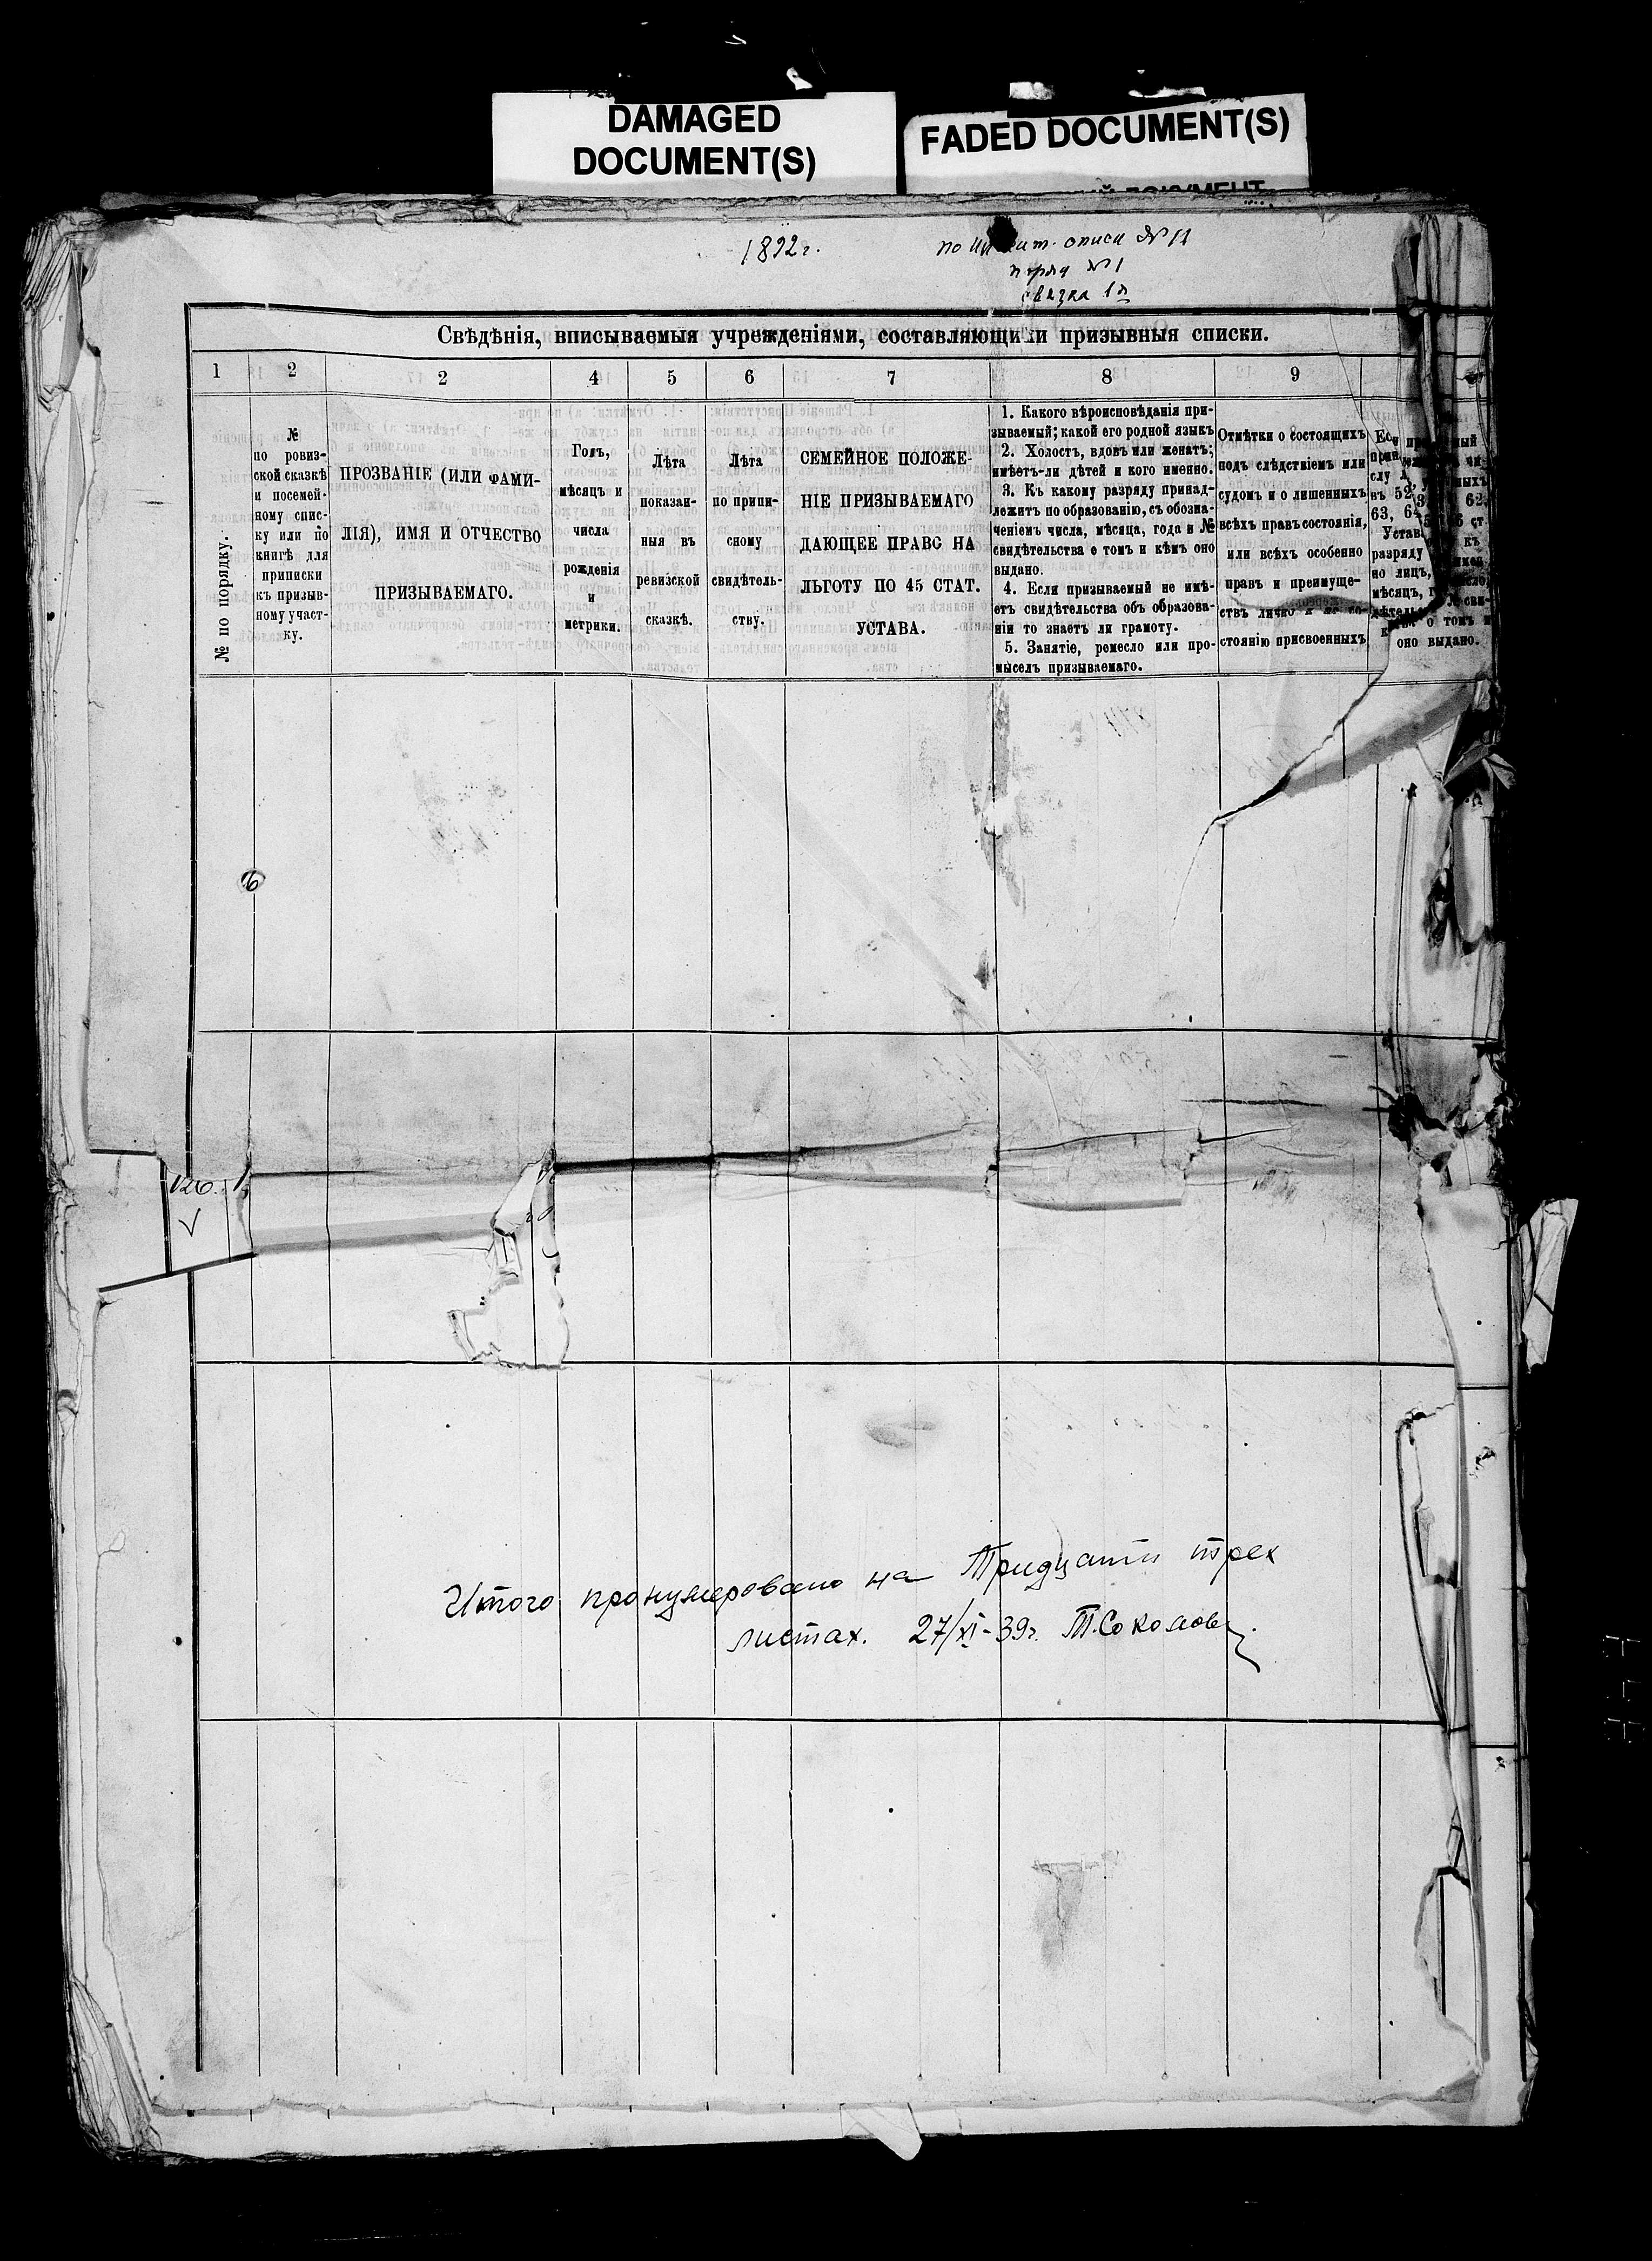 DAMAGED
DOCUMENT(S)
FADED DOCUMENT(S)
1892г.
описи № 11
№ 1
связка 1я
Свѣдѣнія, вписываемыя учрежденіями, составляющими призывныя списки.
1
2
2
4
5
6
7
8
9
№ по порядку.
№
по ровиз-
ской сказкѣ
и посемей-
ному спис-
ку или по
книгѣ для
приписки
къ призыв-
ному участ-
ку.
ПРОЗВАНІЕ (ИЛИ ФАМИ-
ЛІЯ), ИМЯ И ОТЧЕСТВО
ПРИЗЫВАЕМАГО.
Годъ,
мѣсяцъ и
числа
рожденія
и
метрики.
Лѣта
показан-
ныя въ
ревизской
сказкѣ.
Лѣта
по припи-
сному
свидѣтель-
ству.
СЕМЕЙНОЕ ПОЛОЖЕ-
НІЕ ПРИЗЫВАЕМАГО
ДАЮЩЕЕ ПРАВС НА
ЛЬГОТУ ПО 45 СТАТ.
УСТАВА.
1. Какого вѣроисповѣданія при-
зываемый; какой его родной языкъ
2. Холостъ, вдовъ или женатъ;
имѣетъ-ли дѣтей и кого именно.
3. Къ какому разряду принад-
лежитъ по образованію, съ обозна-
ченіемъ числа, мѣсяца, года и №
свидѣтельства о томъ и кѣмъ оно
выдано.
4. Если призываемый не имѣ-
етъ свидѣтельства объ образова-
ніи то знаетъ ли грамоту.
5. Занятіе, ремесло или про-
мыселъ призываемаго.
Отмѣтки о состоящихъ
подъ слѣдствіемъ или
судомъ и о лишенныхъ
всѣхъ правъ состоянія,
или всѣхъ особенно
правъ и преимуще-
ствъ лично и по со-
стоянію присвоенныхъ
слу
въ 52, 62,
63, 64, ст
Устав къ
разряду
но лицъ,
мѣсяцъ, сви-
о томъ и
оно выдано.
6
126.
Итого пронумеровано на Тридцати трех
листах. 27/XI-39г. Т.Соколов